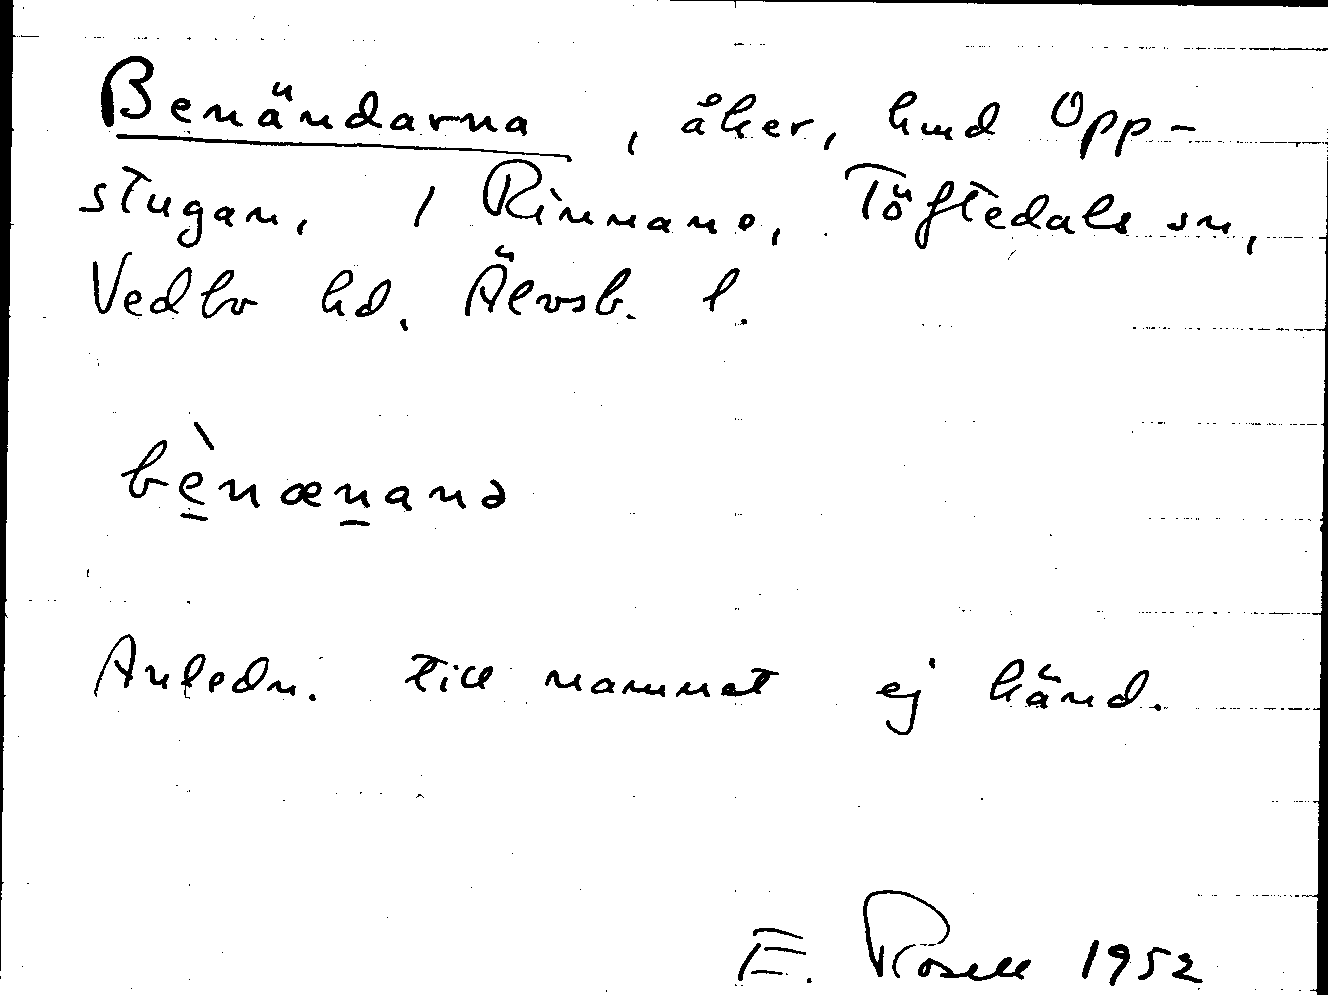 Benändarna, åker, hmd Opp-
stugan, 1 Rinnane, Töftedals sn,
Vedbo hd. Älvsb. l.
bènænanə
Anledn. till namnet ej känd.
E. Rosell 1952